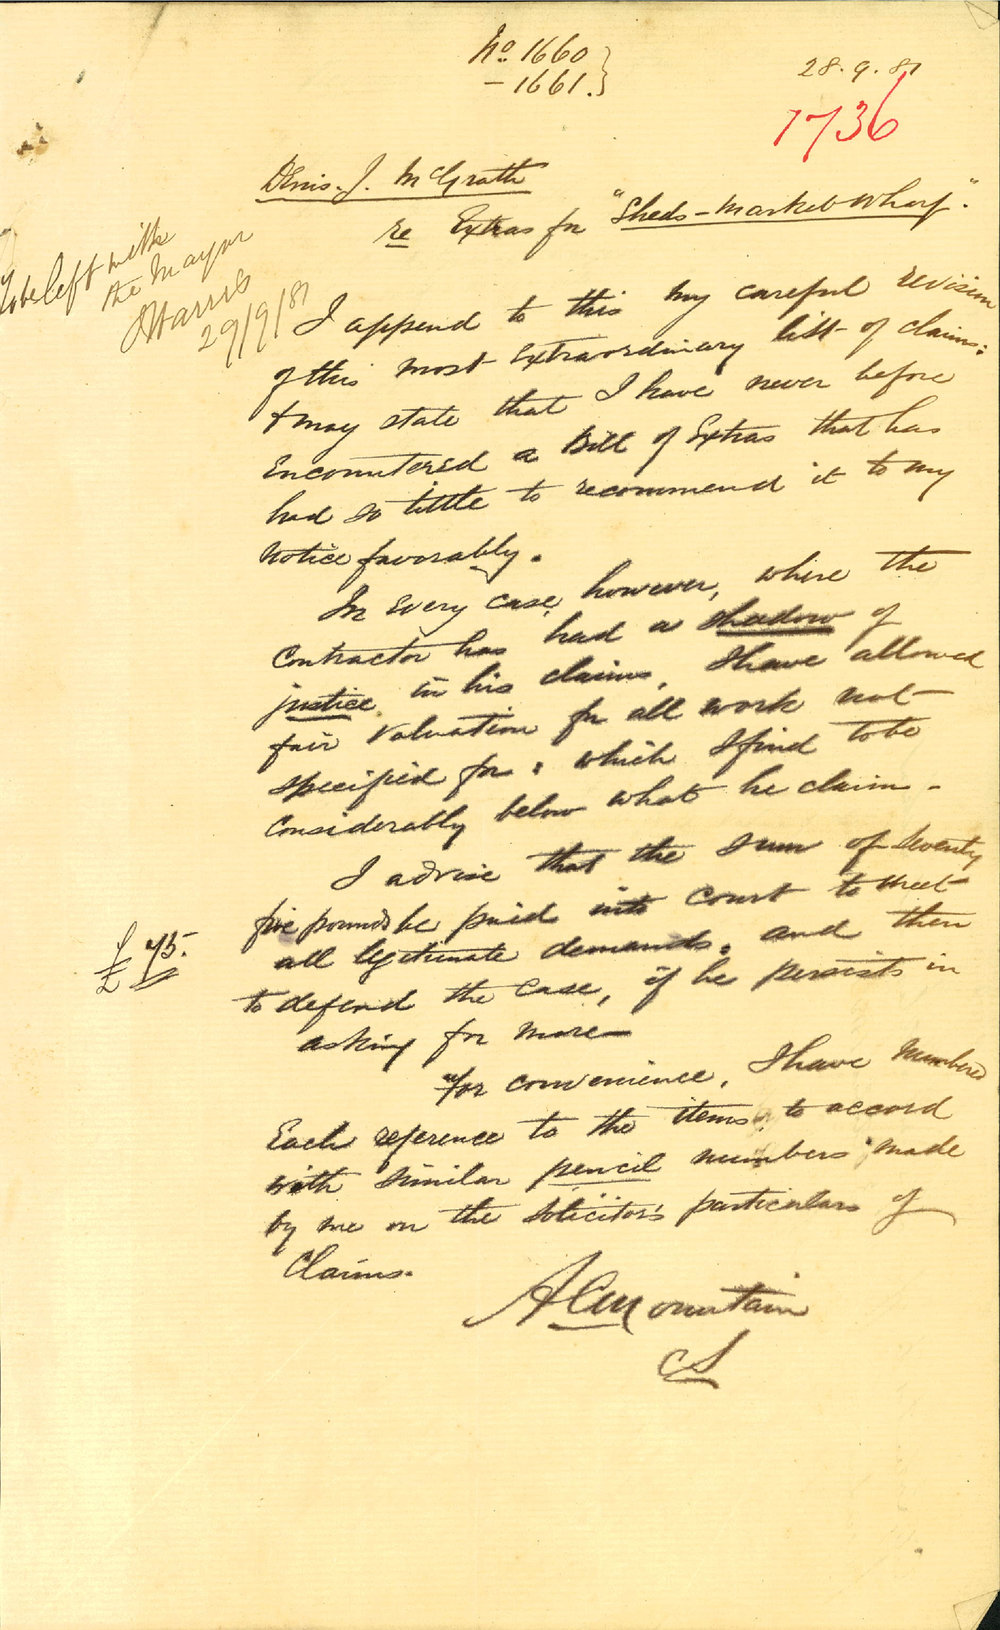 No. 1660
- 1661.
28.9.81
1736
Denis. J. McGrath
re Extras for "Sheds - Market Wharf".
To be left with
the Mayor
Harris
29/9/81
I append to this my careful revision
of this most extraordinary list of claims:
& may state that I have never before
encountered a Bill of Extras that has
had so little to recommend it to my
notice favorably.
In every case, however, where the
Contractor has had a shadow of
justice in his claims, I have allowed
fair valuation for all work not
specified for: which I find to be
considerably below what he claim -
I advise that the sum of Seventy
five pounds be paid into Court to meet
all legitimate demands. and then
£75.
to defend the case, if he persists in
asking for more -
For convenience, I have numbered
Each reference to the items to accord
with similar pencil numbers made
by me on the Solicitor's particulars of
Claims.
A C Mountain
CS